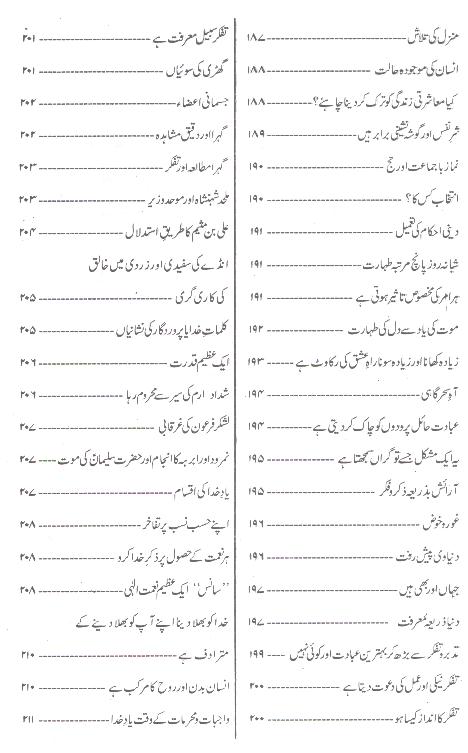 منزل کی تلاش ---------- ۱۸۷
انسان کی موجودہ حالت ---------- ۱۸۸
کیا معاشرتی زندگی کو ترک کر دینا چاہئے؟ ---------- ۱۸۸
شر نفس اور گوشہ نشینی برابر ہیں ---------- ۱۸۹
نماز با جماعت اور حج ---------- ۱۹۰
انتخاب کس کا؟ ---------- ۱۹۰
دینی احکام کی تعمیل ---------- ۱۹۱
شبانہ روز پانچ مرتبہ طہارت ---------- ۱۹۱
ہر امر کی مخصوص تاثیر ہوتی ہے ---------- ۱۹۱
موت کی یاد سے دل کی طہارت ---------- ۱۹۲
زیادہ کھانا اور زیادہ سونا راہِ عشق کی رکاوٹ ہے ---------- ۱۹۳
آہِ سحر گاہی ---------- ۱۹۴
عبادت حائل پردوں کو چاک کر دیتی ہے ---------- ۱۹۴
یہ ایک مشکل جسے تو گراں سمجھتا ہے ---------- ۱۹۵
آرائش بذریعہ ذکر و فکر ---------- ۱۹۵
غور و خوض ---------- ۱۹۶
دنیاوی پیش رفت ---------- ۱۹۶
جہاں اور بھی ہیں ---------- ۱۹۷
دنیا ذریعہ معرفت ---------- ۱۹۷
تدبر و تفکر سے بڑھ کر بہترین عبادت اور کوئی نہیں ---------- ۱۹۹
تفکر نیکی اور عمل کی دعوت دیتا ہے ---------- ۲۰۰
تفکر کا انداز کیسا ہو ---------- ۲۰۰
تفکر سبیل معرفت ہے ---------- ۲۰۱
گھڑی کی سوئیاں ---------- ۲۰۱
جسمانی اعضاء ---------- ۲۰۲
گہرا اور دقیق مشاہدہ ---------- ۲۰۲
گہرا مطالعہ اور تفکر ---------- ۲۰۳
ملحد شہنشاہ اور موحد وزیر ---------- ۲۰۳
علی بن میثم کا طریقِ استدلال ---------- ۲۰۴
انڈے کی سفیدی اور زردی میں خالق
کی کاری گری ---------- ۲۰۵
کلماتِ خدا یا پروردگار کی نشانیاں ---------- ۲۰۵
ایک عظیم قدرت ---------- ۲۰۶
شداد ارم کی سیر سے محروم رہا ---------- ۲۰۶
لشکر فرعون کی غرقابی ---------- ۲۰۷
نمرود اور ابرہہ کا انجام اور حضرت سلیمانؑ کی موت ---- ۲۰۷
یادِ خدا کی اقسام ---------- ۲۰۷
اپنے حسب نسب پر تفاخر ---------- ۲۰۸
ہر نعمت کے حصول پر ذکر خدا کرو ---------- ۲۰۸
”سانس“ ایک عظیم نعمت الٰہی ---------- ۲۰۸
خدا کو بھلا دینا اپنے آپ کو بھلا دینے کے
مترادف ہے ---------- ۲۱۰
انسان بدن اور روح کا مرکب ہے ---------- ۲۱۰
واجبات و محرمات کے وقت یادِ خدا ---------- ۲۱۱